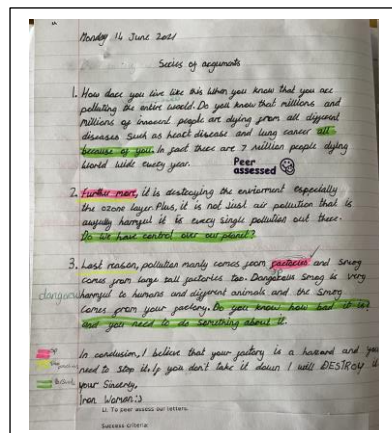 Monday 14 June 2021
Series of arguments
1. How dare you live like this when you know that you are
polluting the entire world. Do you know that millions and
millions of innocent people are dying from all different
diseases such as heart disease and lung cancer all
because of you. In fact there are 7 million people dying
world wide every year.
Peer
assessed
2. Further more, it is destroying the enviorment especially
the ozone layer. Plus, it is not just air pollution that is
awfully harmful it is every single pollution out there.
Do we have control over our planet?
3. Last reason, pollution manly comes from factories and smog
comes from large tall factories too. Dangerous Smog is very
dangerous
harmful to humans and different animals and the smog
comes from your factory. Do you know how bad it is?
and you need to do something about it.
In conclusion, I believe that your factory is a hazard and you
need to stop it. If you don't take it down I will DESTROY it
Your Sincerly,
Iron Woman :)
LI: To peer assess our letters.
Success criteria: